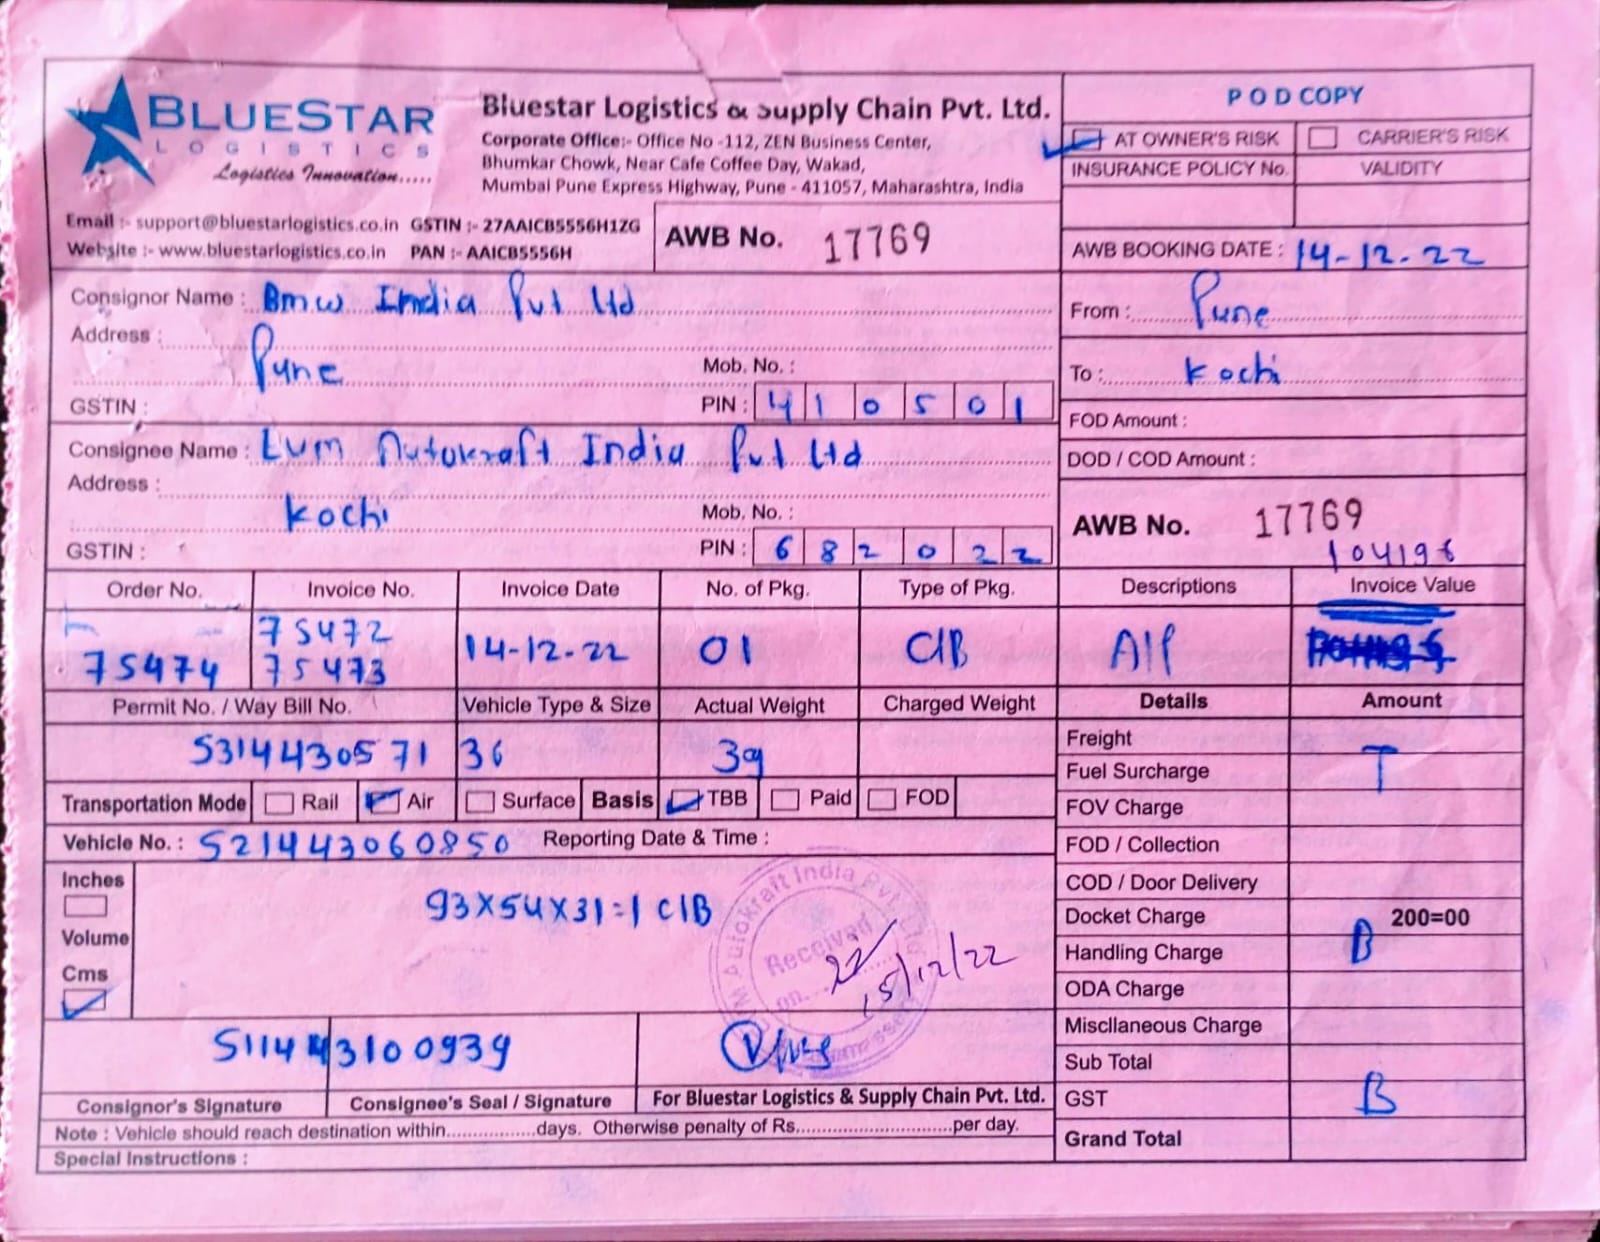 BLUESTAR
LOGISTICS
Logistics Innovation.....
Bluestar Logistics & Supply Chain Pvt. Ltd.
Corporate Office:- Office No -112, ZEN Business Center,
Bhumkar Chowk, Near Cafe Coffee Day, Wakad,
Mumbai Pune Express Highway, Pune - 411057, Maharashtra, India
Email :- support@bluestarlogistics.co.in GSTIN :- 27AAICB5556H1ZG
Website :- www.bluestarlogistics.co.in PAN :- AAICB5556H
AWB No. 17769
POD COPY
AT OWNER'S RISK CARRIER'S RISK
INSURANCE POLICY No. VALIDITY
AWB BOOKING DATE : 14-12-22
Consignor Name : Bmw India Pvt Ltd
Address :
Pune
Mob. No. :
GSTIN :
PIN : 410501
From : Pune
To : Kochi
FOD Amount :
DOD / COD Amount :
Consignee Name : EVM Autokraft India Pvt Ltd
Address :
Kochi
Mob. No. :
GSTIN :
PIN : 682022
AWB No. 17769
104196
Order No. Invoice No. Invoice Date No. of Pkg. Type of Pkg. Descriptions Invoice Value
75472
75474 75473 14-12-22 01 C/B A/P
Permit No. / Way Bill No. Vehicle Type & Size Actual Weight Charged Weight Details Amount
5314430571 36 39
Freight
Fuel Surcharge T
FOV Charge
FOD / Collection
COD / Door Delivery
Docket Charge 200=00
Handling Charge B
ODA Charge
Miscllaneous Charge
Sub Total
GST B
Grand Total
Transportation Mode Rail Air Surface Basis TBB Paid FOD
Vehicle No. : 521443060850 Reporting Date & Time :
Inches
Volume
Cms
93X54X31=1 C/B
Autokraft India
Received
on...
15/12/22
511443100939
Consignor's Signature Consignee's Seal / Signature For Bluestar Logistics & Supply Chain Pvt. Ltd.
Note : Vehicle should reach destination within.................days. Otherwise penalty of Rs..............................per day.
Special Instructions :